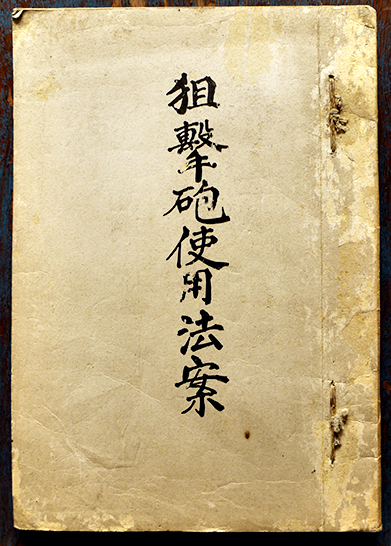 狙擊砲使用法案